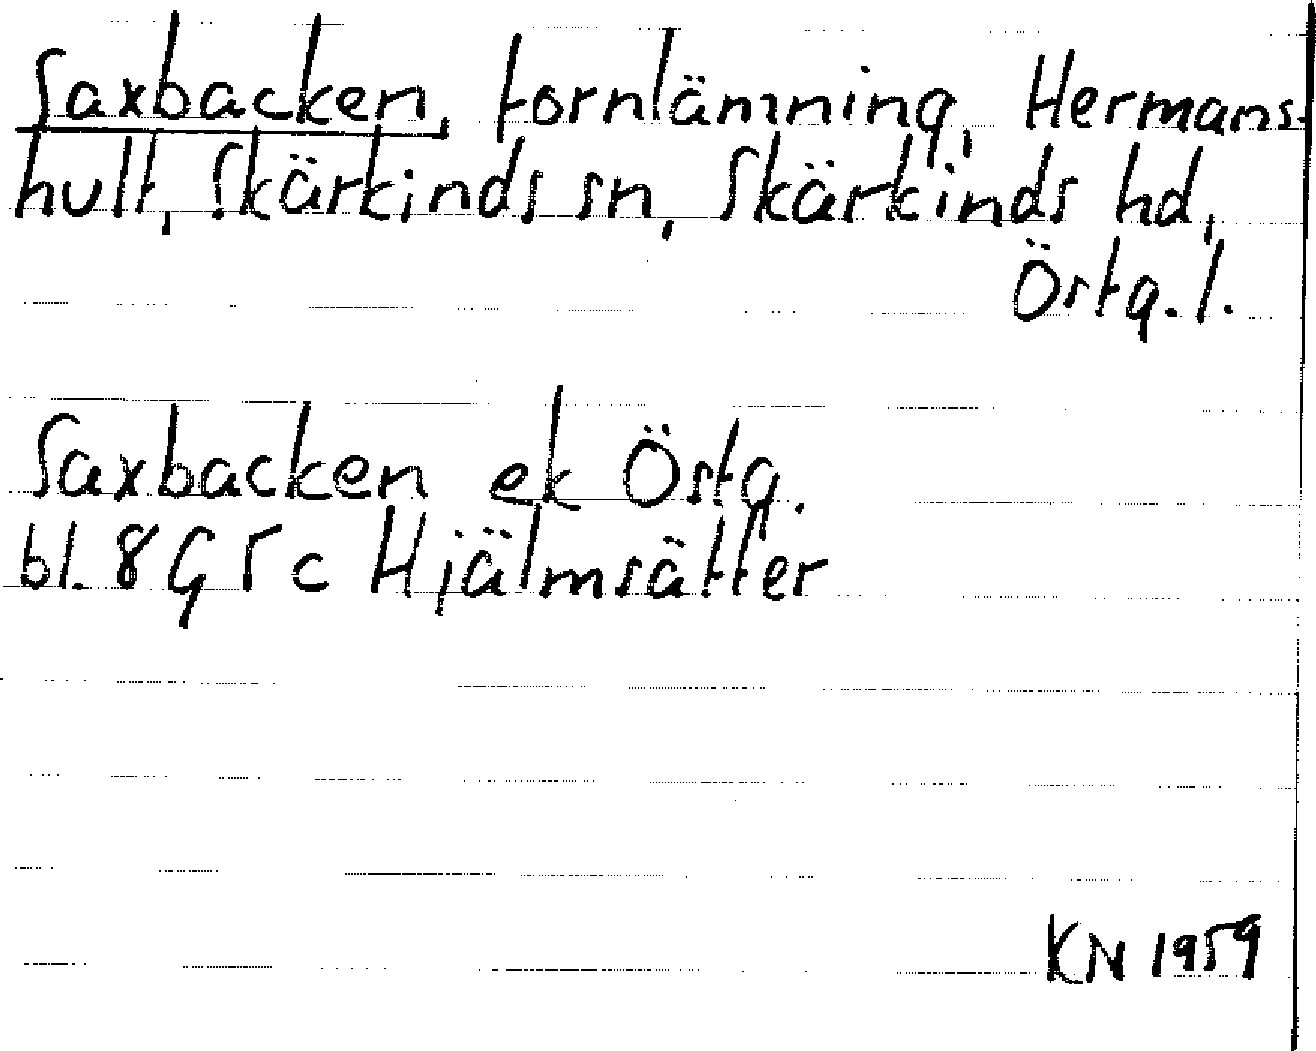 Saxbacken, fornlämning, Hermans-
hult, Skärkinds sn, Skärkinds hd,
Östg. l.
Saxbacken ek Östg.
bl. 8 G 5 c Hjälmsätter
KN 1959